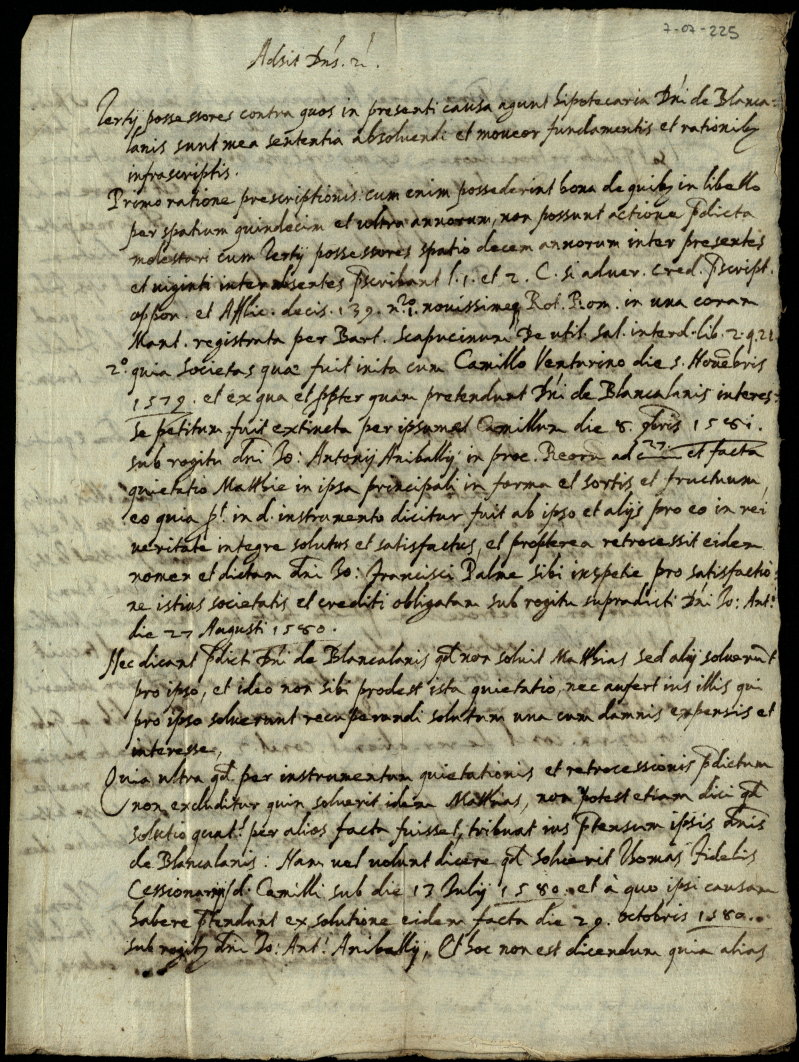 7-07-225
Adsit Dñs. n.
Tertij possessores contra quos in presenti causa agunt hipotecaria Dñi de Blanca=
lanis sunt mea sententia absolvendi et moveor fundamentis et rationibꝫ
infrascriptis.
Primo ratione prescriptionis: cum enim possederint bona de quibꝫ in libello
per spatium quindecim et ultra annorum, non possunt actione p̃dicta
molestari cum Tertij possessores spatio decem annorum inter presentes
et viginti inter absentes p̃scribant l. 1. et 2. C. si adver. cred. p̃script.
oppon. et Afflic. decis. 139. nº 1. novissimeq Rot. Rom. in una coram
Mant. registrata per Bart. Scapucinum De util. sal. interd. lib. 2. q. 21
2º quia societas quæ fuit inita cum Camillo Venturino die 5. Novẽbris
1579. et ex qua et p̃pter quam pretendunt Dñi de Blancalanis interes=
se petitum fuit extincta per ipsumet Camillum die 8. 9bris 1581.
sub rogitu dñi Jo: Antonij Anibally in proc. Recom ad 27. et facta
quietatio Matthie in ipsa principali in forma et sortis et fructuum,
eo quia p.t in d. instrumento dicitur fuit ab ipso et alijs pro eo in rei
veritate integre solutus et satisfactus, et propterea retrocessit eidem
nomen et dictam dñi Jo: Francisci Palme sibi in spetie pro satisfactio=
ne istius societatis et crediti obligatam sub rogitu supradicti Dñi Jo: Ant.
die 27 Augusti 1580.
Nec dicant p̃dicti Dñi de Blancalanis qd non solvit Matthias sed alij solverũt
pro ipso, et ideo non sibi prodest ista quietatio, nec aufert ius illis qui
pro ipso solverunt recuperandi solutum una cum damnis expensis et
interesse,
Quia ultra qd per instrumentum quietationis et retrocessionis p̃dictum
non excluditur quin solverit idem Matthias, non potest etiam dici qd
solutio quat. per alios facta fuisset, tribuat ius p̃tensum ipsis dñis
de Blancalanis: Nam vel volunt dicere qd solverit Thomas Fidelis
Cessionarij d. Camilli sub die 13 Iulij 1580. et à quo ipsi causam
habere p̃tendunt ex solutione eidem facta die 29. octobris 1580.
sub rogitꝫ dñi Jo: Ant. Anibally, Et hoc non est dicendum quia alias